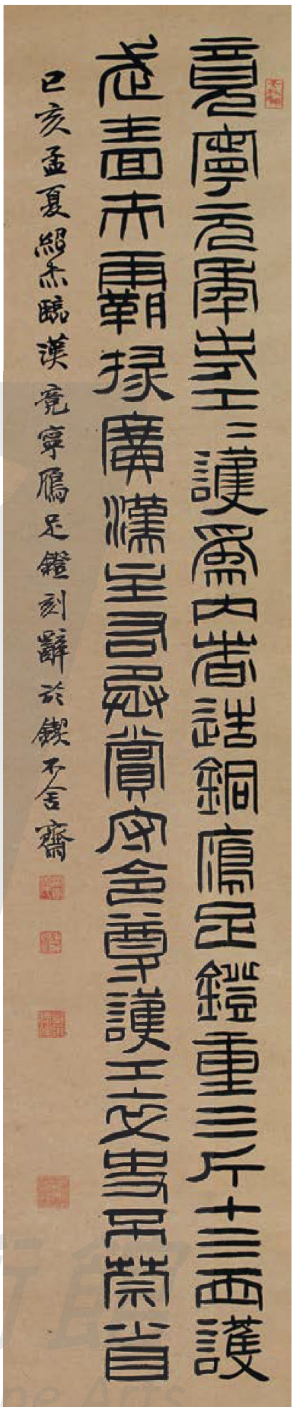 竟寧元年考工二護為內者造銅鴈足鐙重三斤十二兩護
武嗇夫霸掾廣漢主右丞賞守令尊護工卒史不禁省
己亥孟夏紹杰臨漢竟寧鴈足鐙刻辭於鍥不舍齋